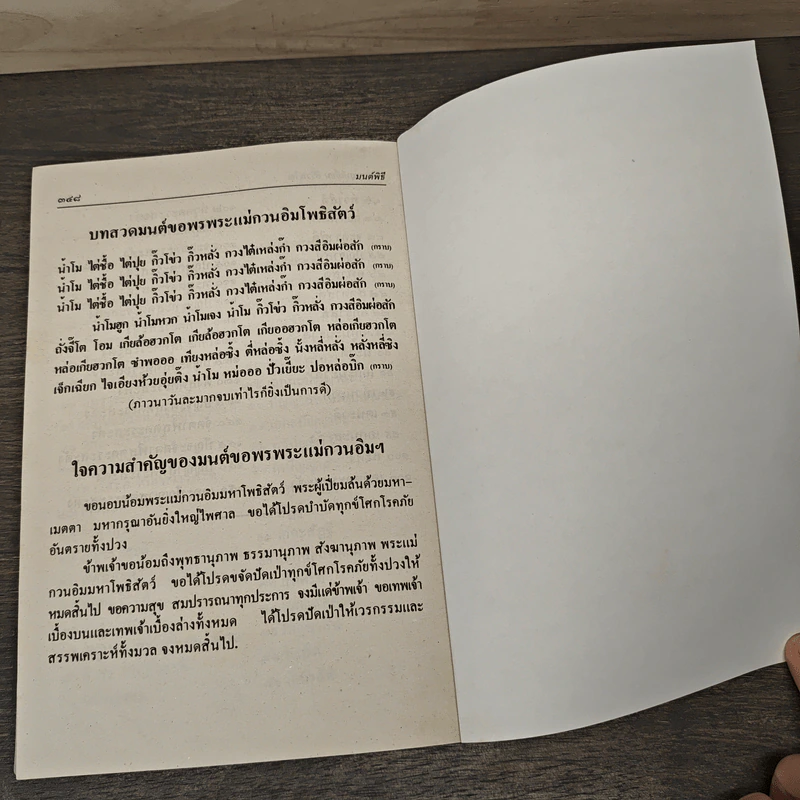 ๓๔๘
มนต์พิธี
บทสวดมนต์ขอพรพระแม่กวนอิมโพธิสัตว์
นำโม ไต่ซื้อ ไต่ปุย กิ๊วโข่ว กิ๊วหลั่ง กวงไต๋เหล่งก้ำ กวงสีอิมผ่อสัก (กราบ)
นำโม ไต่ซื้อ ไต่ปุย กิ๊วโข่ว กิ๊วหลั่ง กวงไต๋เหล่งก้ำ กวงสีอิมผ่อสัก (กราบ)
นำโม ไต่ซื้อ ไต่ปุย กิ๊วโข่ว กิ๊วหลั่ง กวงไต๋เหล่งก้ำ กวงสีอิมผ่อสัก (กราบ)
นำโมฮูก นำโมหวก นำโมเจง นำโม กิ๊วโข่ว กิ๊วหลั่ง กวงสีอิมผ่อสัก
ถั่งจี้โต โอม เกียล้อฮวกโต เกียล้อฮวกโต เกียออฮวกโต หล่อเกียฮวกโต
หล่อเกียฮวกโต ซ่าพอออ เทียงหล่อซิ้ง ตี่หล่อซิ้ง นั้งหลี่หลั่ง หลั่งหลี่ซิง
เจ็กเฉียก ไจเอียงห้วยอุ่ยติ๊ง นำโม หม่อออ ปั่วเยี๊ยะ ปอหล่อบิ๊ก (กราบ)
(ภาวนาวันละมากจบเท่าไรก็ยิ่งเป็นการดี)
ใจความสำคัญของมนต์ขอพรพระแม่กวนอิมฯ
ขอนอบน้อมพระแม่กวนอิมมหาโพธิสัตว์ พระผู้เปี่ยมล้นด้วยมหา-
เมตตา มหากรุณาอันยิ่งใหญ่ไพศาล ขอได้โปรดบำบัดทุกข์โศกโรคภัย
อันตรายทั้งปวง
ข้าพเจ้าขอน้อมถึงพุทธานุภาพ ธรรมานุภาพ สังฆานุภาพ พระแม่
กวนอิมมหาโพธิสัตว์ ขอได้โปรดขจัดปัดเป่าทุกข์โศกโรคภัยทั้งปวงให้
หมดสิ้นไป ขอความสุข สมปรารถนาทุกประการ จงมีแด่ข้าพเจ้า ขอเทพเจ้า
เบื้องบนและเทพเจ้าเบื้องล่างทั้งหมด ได้โปรดปัดเป่าให้เวรกรรมและ
สรรพเคราะห์ทั้งมวล จงหมดสิ้นไป.